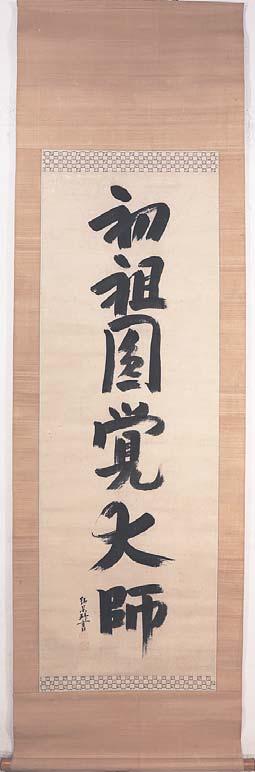 初祖圓覚大師